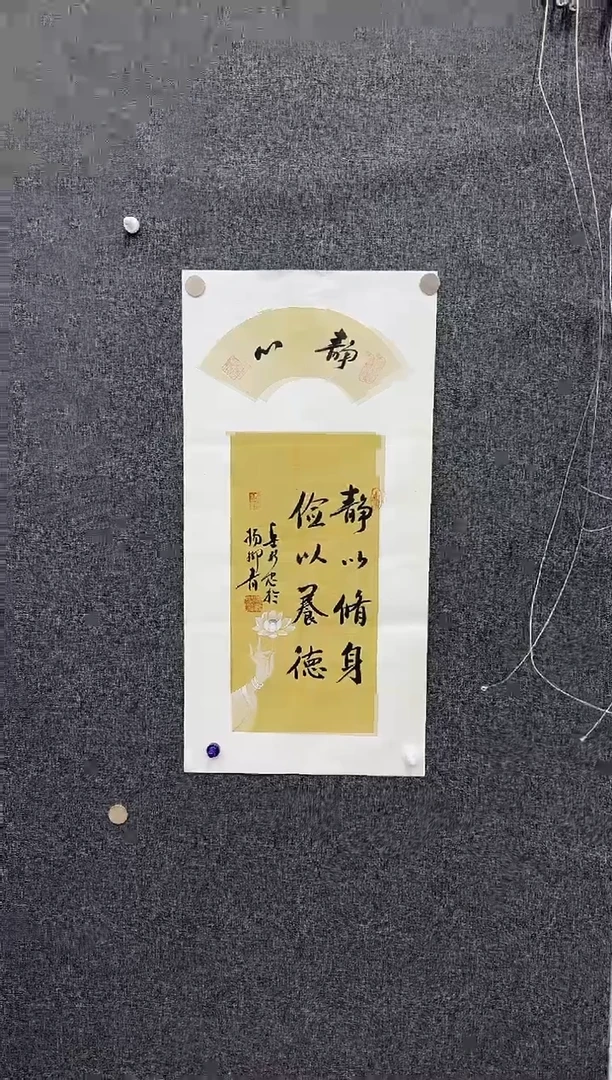 静心
静以脩身
俭以養德
於
杨柳青